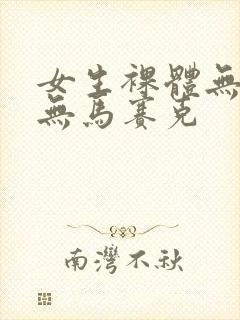 女生裸體無
無馬賽克
南灣不秋